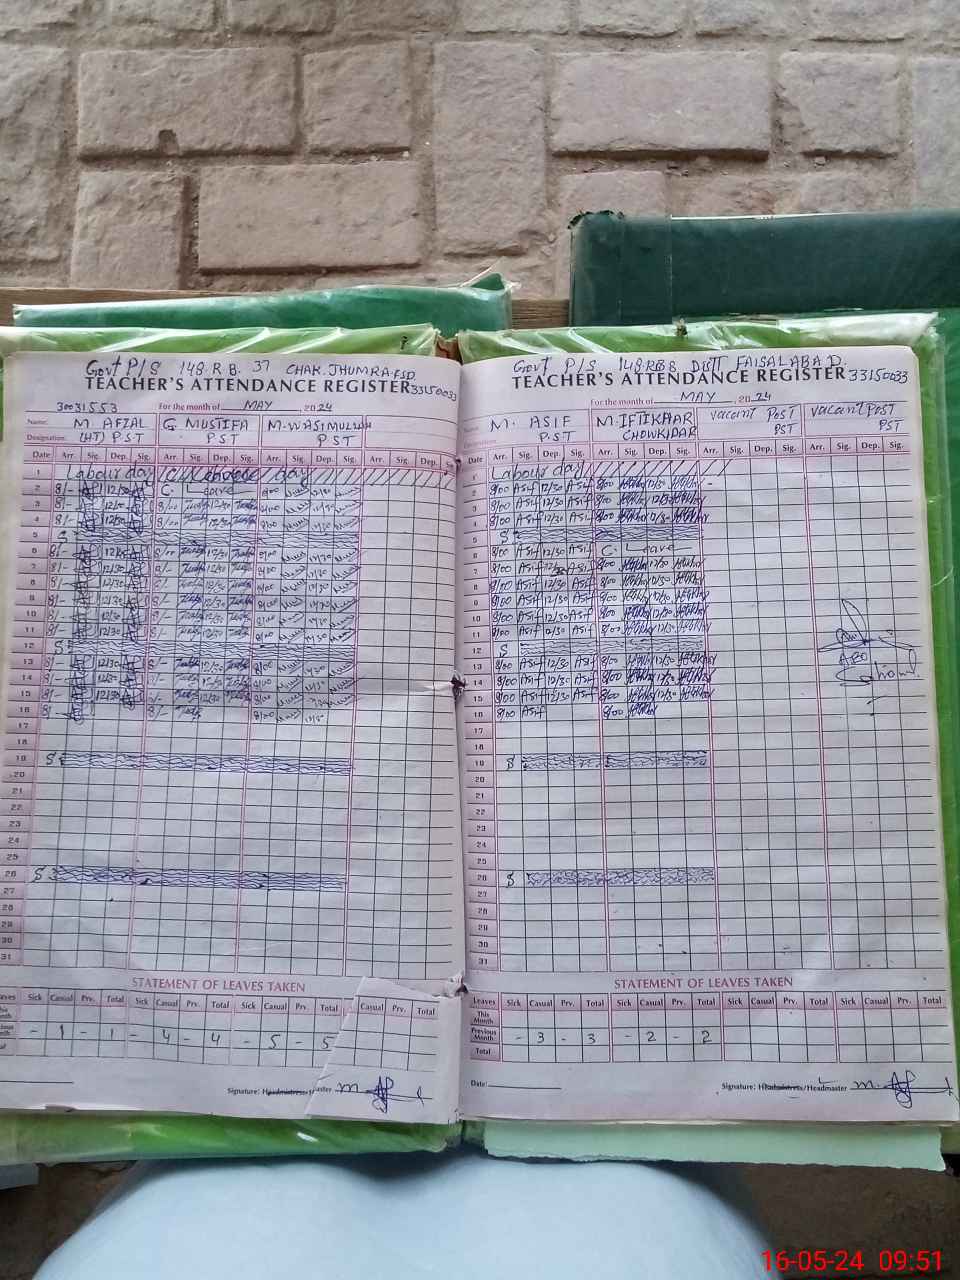 Govt P/S 148.R.B. 37 CHAK. JHUMRA.FSD
TEACHER'S ATTENDANCE REGISTER 33150033
30031553 For the month of MAY, 2024
Name: M. AFZAL G. MUSTIFA M. WASIMULLAH
Designation: (HT) P.S.T P S T P S T
Date Arr. Sig. Dep. Sig. Arr. Sig. Dep. Sig. Arr. Sig. Dep. Sig. Arr. Sig. Dep. Sig.
1 Labour day Labour day
2 8/- 12/30 C. Leave 8/00 12/30
3 8/- 12/30 8/00 12/30 8/00 12/30
4 8/- 12/30 8/00 12/30 8/00 12/30
5 S
6 8/- 12/30 8/00 12/30 8/00 12/30
7 8/- 12/30 8/- 12/30 8/00 12/30
8 8/- 12/30 8/- 12/30 8/00 12/30
9 8/- 12/30 8/- 12/30 8/00 12/30
10 8/- 12/30 8/- 12/30 8/00 12/30
11 8/- 12/30 8/- 12/30 8/00 12/30
12 S
13 8/- 12/30 8/- 12/30 8/00 12/30
14 8/- 12/30 8/- 12/30 8/00 12/30
15 8/- 12/30 8/- 12/30 8/00 12/30
16 8/- 8/- 8/00 12/30
17
18
19 S
20
21
22
23
24
25
26 S
27
28
29
30
31
STATEMENT OF LEAVES TAKEN
Leaves Sick Casual Prv. Total Sick Casual Prv. Total Sick Casual Prv. Total Casual Prv. Total
This Month
Previous Month - 1 - 1 - 4 - 4 - 5 - 5
Total
Signature: Headmistress/Headmaster
Govt P/S 148 RB DISTT FAISALABAD.
TEACHER'S ATTENDANCE REGISTER 33150033
For the month of MAY, 2024
Name: M. ASIF M. IFTIKHAR vacant POST vacant POST
Designation: P.S.T CHOWKIDAR PST PST
Date Arr. Sig. Dep. Sig. Arr. Sig. Dep. Sig. Arr. Sig. Dep. Sig. Arr. Sig. Dep. Sig.
1 Labour day
2 8/00 Asif 12/30 Asif 8/00 12/30
3 8/00 Asif 12/30 Asif 8/00 12/30
4 8/00 Asif 12/30 Asif 8/00 12/30
5 S
6 8/00 Asif 12/30 Asif C. Leave
7 8/00 Asif 12/30 Asif 8/00 12/30
8 8/00 Asif 12/30 Asif 8/00 12/30
9 8/00 Asif 12/30 Asif 8/00 12/30
10 8/00 Asif 12/30 Asif 8/00 12/30
11 8/00 Asif 12/30 Asif 8/00 12/30
12 S
13 8/00 Asif 12/30 Asif 8/00 12/30
14 8/00 Asif 12/30 Asif 8/00 12/30
15 8/00 Asif 12/30 Asif 8/00 12/30
16 8/00 Asif 8/00
17
18
19 S
20
21
22
23
24
25
26 S
27
28
29
30
31
STATEMENT OF LEAVES TAKEN
Leaves Sick Casual Prv. Total Sick Casual Prv. Total Sick Casual Prv. Total Sick Casual Prv. Total
This Month
Previous Month - 3 - 3 - 2 - 2
Total
Date: Signature: Headmistress/Headmaster
16-05-24 09:51